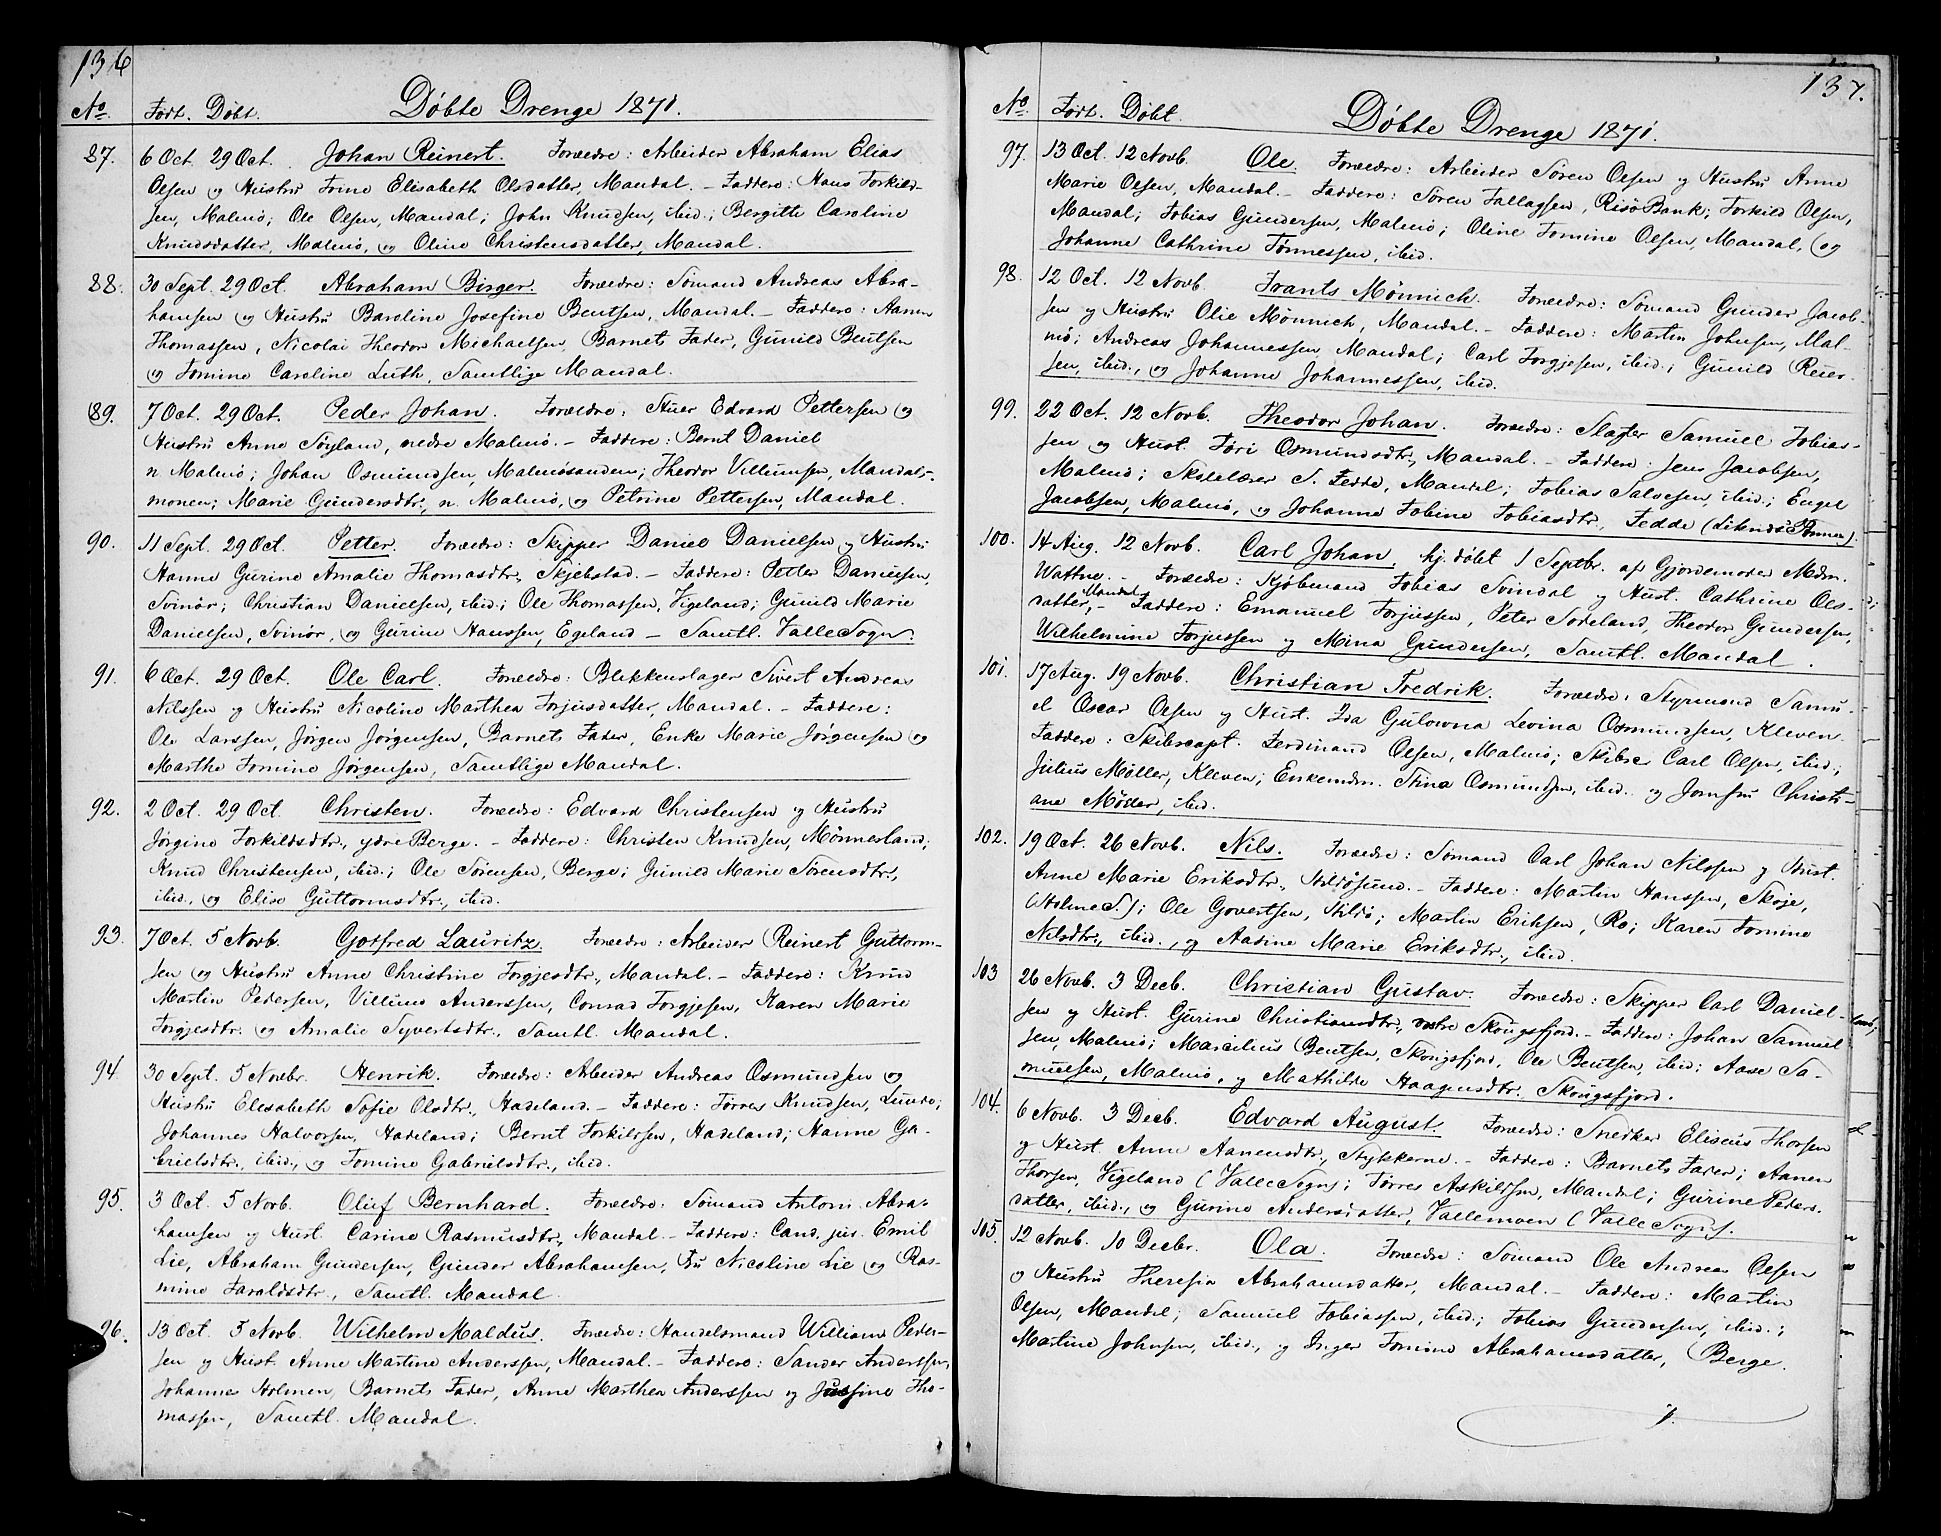 136
No. Født. Döbt. Döbte Drenge 1871.
87. 6 Oct. 29 Oct. Johan Reinert. Forældre: Arbeider Abraham Elias
Olsen og Hustru Tomine Elisabeth Olsdatter, Mandal. – Faddere: Hans Torkild-
sen, Malmö; Ole Olsen, Mandal; John Knudsen, ibid.; Bergitte Caroline
Knudsdatter, Malmö, og Oline Christensdatter, Mandal.
88. 30 Sept. 29 Oct. Abraham Birger. Forældre: Sömand Andreas Abra-
hamsen og Hustru Baroline Josefine Bentsen, Mandal. – Faddere: Aanen
Thomassen, Nicolai Theodor Michaelsen, Barnets Fader, Gunild Bentsen
og Tomine Caroline Luth, Samtlige Mandal.
89. 7 Oct. 29 Oct. Peder Johan. Forældre: Stuer Edvard Pettersen og
Hustru Anne Söyland, nedre Malmö. – Faddere: Bernt Daniel
n Malmö; Johan Osmundsen, Malmösanden; Theodor Villumsen, Mandals-
monen; Marie Gundersdtr., n. Malmö, og Petrine Pettersen, Mandal.
90. 11 Sept. 29 Oct. Petter. Forældre: Skipper Daniel Danielsen og Hustru
Hanne Gurine Amalie Thomasdtr., Skjebstad. – Faddere: Petter Danielsen,
Svinör; Christian Danielsen, ibid.; Ole Thomassen, Vigeland; Gunild Marie
Danielsen, Svinör, og Gurine Hanssen, Egeland – Samtl. Valle Sogn.
91. 6 Oct. 29 Oct. Ole Carl. Forældre: Blikkenslager Sivert Andreas
Nilssen og Hustru Nicoline Marthea Torjusdatter, Mandal. – Faddere:
Ole Larssen, Jörgen Jörgensen, Barnets Fader, Enke Marie Jörgensen og
Marthe Tomine Jörgensen, Samtlige Mandal.
92. 2 Oct. 29 Oct. Christen. Forældre: Edvard Christensen og Hustru
Jörgine Torkildsdtr., ydre Berge. – Faddere: Christen Knudsen, Mönnesland;
Knud Christensen, ibid.; Ole Sörensen, Berge; Gunild Marie Sörensdtr.,
ibid., og Elise Guttormsdtr., ibid.
93. 7 Oct. 5 Novb. Gotfred Lauritz. Forældre: Arbeider Reinert Guttorm-
sen og Hustru Anne Christine Torgjesdtr., Mandal. – Faddere: Knud
Martin Pedersen, Villums Anderssen, Conrad Torgjesen, Karen Marie
Torgjesdtr. og Amalie Syvertsdtr., Samtl. Mandal.
94. 30 Sept. 5 Novbr. Henrik. Forældre: Arbeider Andreas Osmundsen og
Hustru Elisabeth Sofie Olsdtr., Hadeland. – Faddere: Törres Knudsen, Lunde;
Johannes Halvorsen, Hadeland; Bernt Torkildsen, Hadeland; Hanne Ga-
brielsdtr., ibid., og Tomine Gabrielsdtr., ibid.
95. 3 Oct. 5 Novb. Oluf Bernhard. Forældre: Sömand Antoni Abra-
hamsen og Hust. Carine Rasmusdtr., Mandal. – Faddere: Cand. jus. Emil
Lie, Abraham Gundersen, Gunder Abrahamsen, Fru Nicoline Lie og Ras-
mine Taraldsdtr., Samtl. Mandal.
96. 13 Oct. 5 Novb. Wilhelm Maldus. Forældre: Handelsmand William Peder-
sen og Hust. Anne Martine Anderssen, Mandal. – Faddere: Sander Anderssen,
Johannes Holmen, Barnets Fader, Anne Marthea Anderssen og Jusfine Tho-
massen, Samtl. Mandal.
137.
No. Født. Döbt. Döbte Drenge 1871.
97. 13 Oct. 12 Novb. Ole. Forældre: Arbeider Sören Olsen og Hustru Anne
Marie Olsen, Mandal. – Faddere: Sören Tallagsen, RisöBank; Torkild Olsen,
Mandal; Tobias Gundersen, Malmö; Oline Tomine Olsen, Mandal, og
Johanne Cathrine Tönnessen, ibid.
98. 12 Oct. 12 Novb. Frants Mönnich. Forældre: Sömand Gunder Jacob-
sen og Hustru Olie Mönnich, Mandal. – Faddere: Martin Johnsen, Mal-
mö; Andreas Johannessen, Mandal; Carl Torgjesen, ibid.; Gunild Reier-
sen, ibid., og Johanne Johannessen, ibid.
99. 22 Oct. 12 Novb. Theodor Johan. Forældre: Slagter Samuel Tobias-
sen og Hust. Töri Osmundsdtr., Mandal. – Faddere: Jens Jacobsen,
Malmö; Skolelærer S. Fedde, Mandal; Tobias Salvesen, ibid.; Engel
Jacobsen, Malmö, og Johanne Tobine Tobiasdtr., Fedde
100. 14 Aug. 12 Novb. Carl Johan, hj. döbt 1 Septbr. af Gjordemoder Mdm.
Wattne. – Forældre: Kjöbmand Tobias Svindal og Hust. Cathrine Ols-
datter, Mandal – Faddere: Emanuel Torjussen, Peter Sodeland, Theodor Gundersen,
Wilhelmine Torjussen og Mina Gundersen, Samtl. Mandal.
101. 17 Aug. 19 Novb. Christian Fredrik. Forældre: Styrmand Samu-
el Oscar Olsen og Hust. Ida Gulowna Levina Osmundsen, Kleven
Faddere: Skibscapt. Ferdinand Olsen, Malmö; Skibsc. Carl Olsen, ibid.;
Julius Möller, Kleven; Enkemdm. Stina Osmundsen, ibid. og Jomfru Christi-
ane Möller, ibid.
102. 19 Oct. 26 Novb. Nils. Forældre: Sömand Carl Johan Nilssen og Hust.
Anne Marie Eriksdtr., Hildösund. – Faddere: Martin Hanssen, Skoje,
(Holme S.); Ole Govertsen, Hildö; Martin Eriksen, Ro; Karen Tomine
Nilsdtr., ibid., og Aasine Marie Eriksdtr., ibid.
103 26 Novb. 3 Decb. Christian Gustav. Forældre: Skipper Carl Daniel-
sen og Hust. Gurine Christiansdtr., vestre Skougsfjord. – Faddere: Johan Samuel
sen, Malmö; Marcilius Bentsen, Skougsfjord, Ole Bentsen, ibid; Aase Sa-
muelsen, Malmö, og Mathilde Haagensdtr. Skougsfjord.
104. 6 Novb. 3 Decb. Edvard August. Forældre: Snedker Eliseus Thorsen
og Hust. Anne Aanensdtr., Stykkerne. – Faddere: Barnets Fader; Aanen
Thorsen, Vigeland (Valle Sogn); Törres Askildsen, Mandal; Gurine Peders-
datter, ibid., og Gurine Andersdatter, Vallemoen (Valle Sogn).
105. 12 Novb. 10 Decbr. Ola. Forældre: Sömand Ole Andreas Olsen
og Hustru Theresia Abrahamsdatter, Mandal. – Faddere: Martin
Olsen, Mandal; Samuel Tobiassen, ibid.; Tobias Gundersen, ibid.;
Martine Johnsen, ibid., og Inger Tomine Abrahamsdatter, Berge.